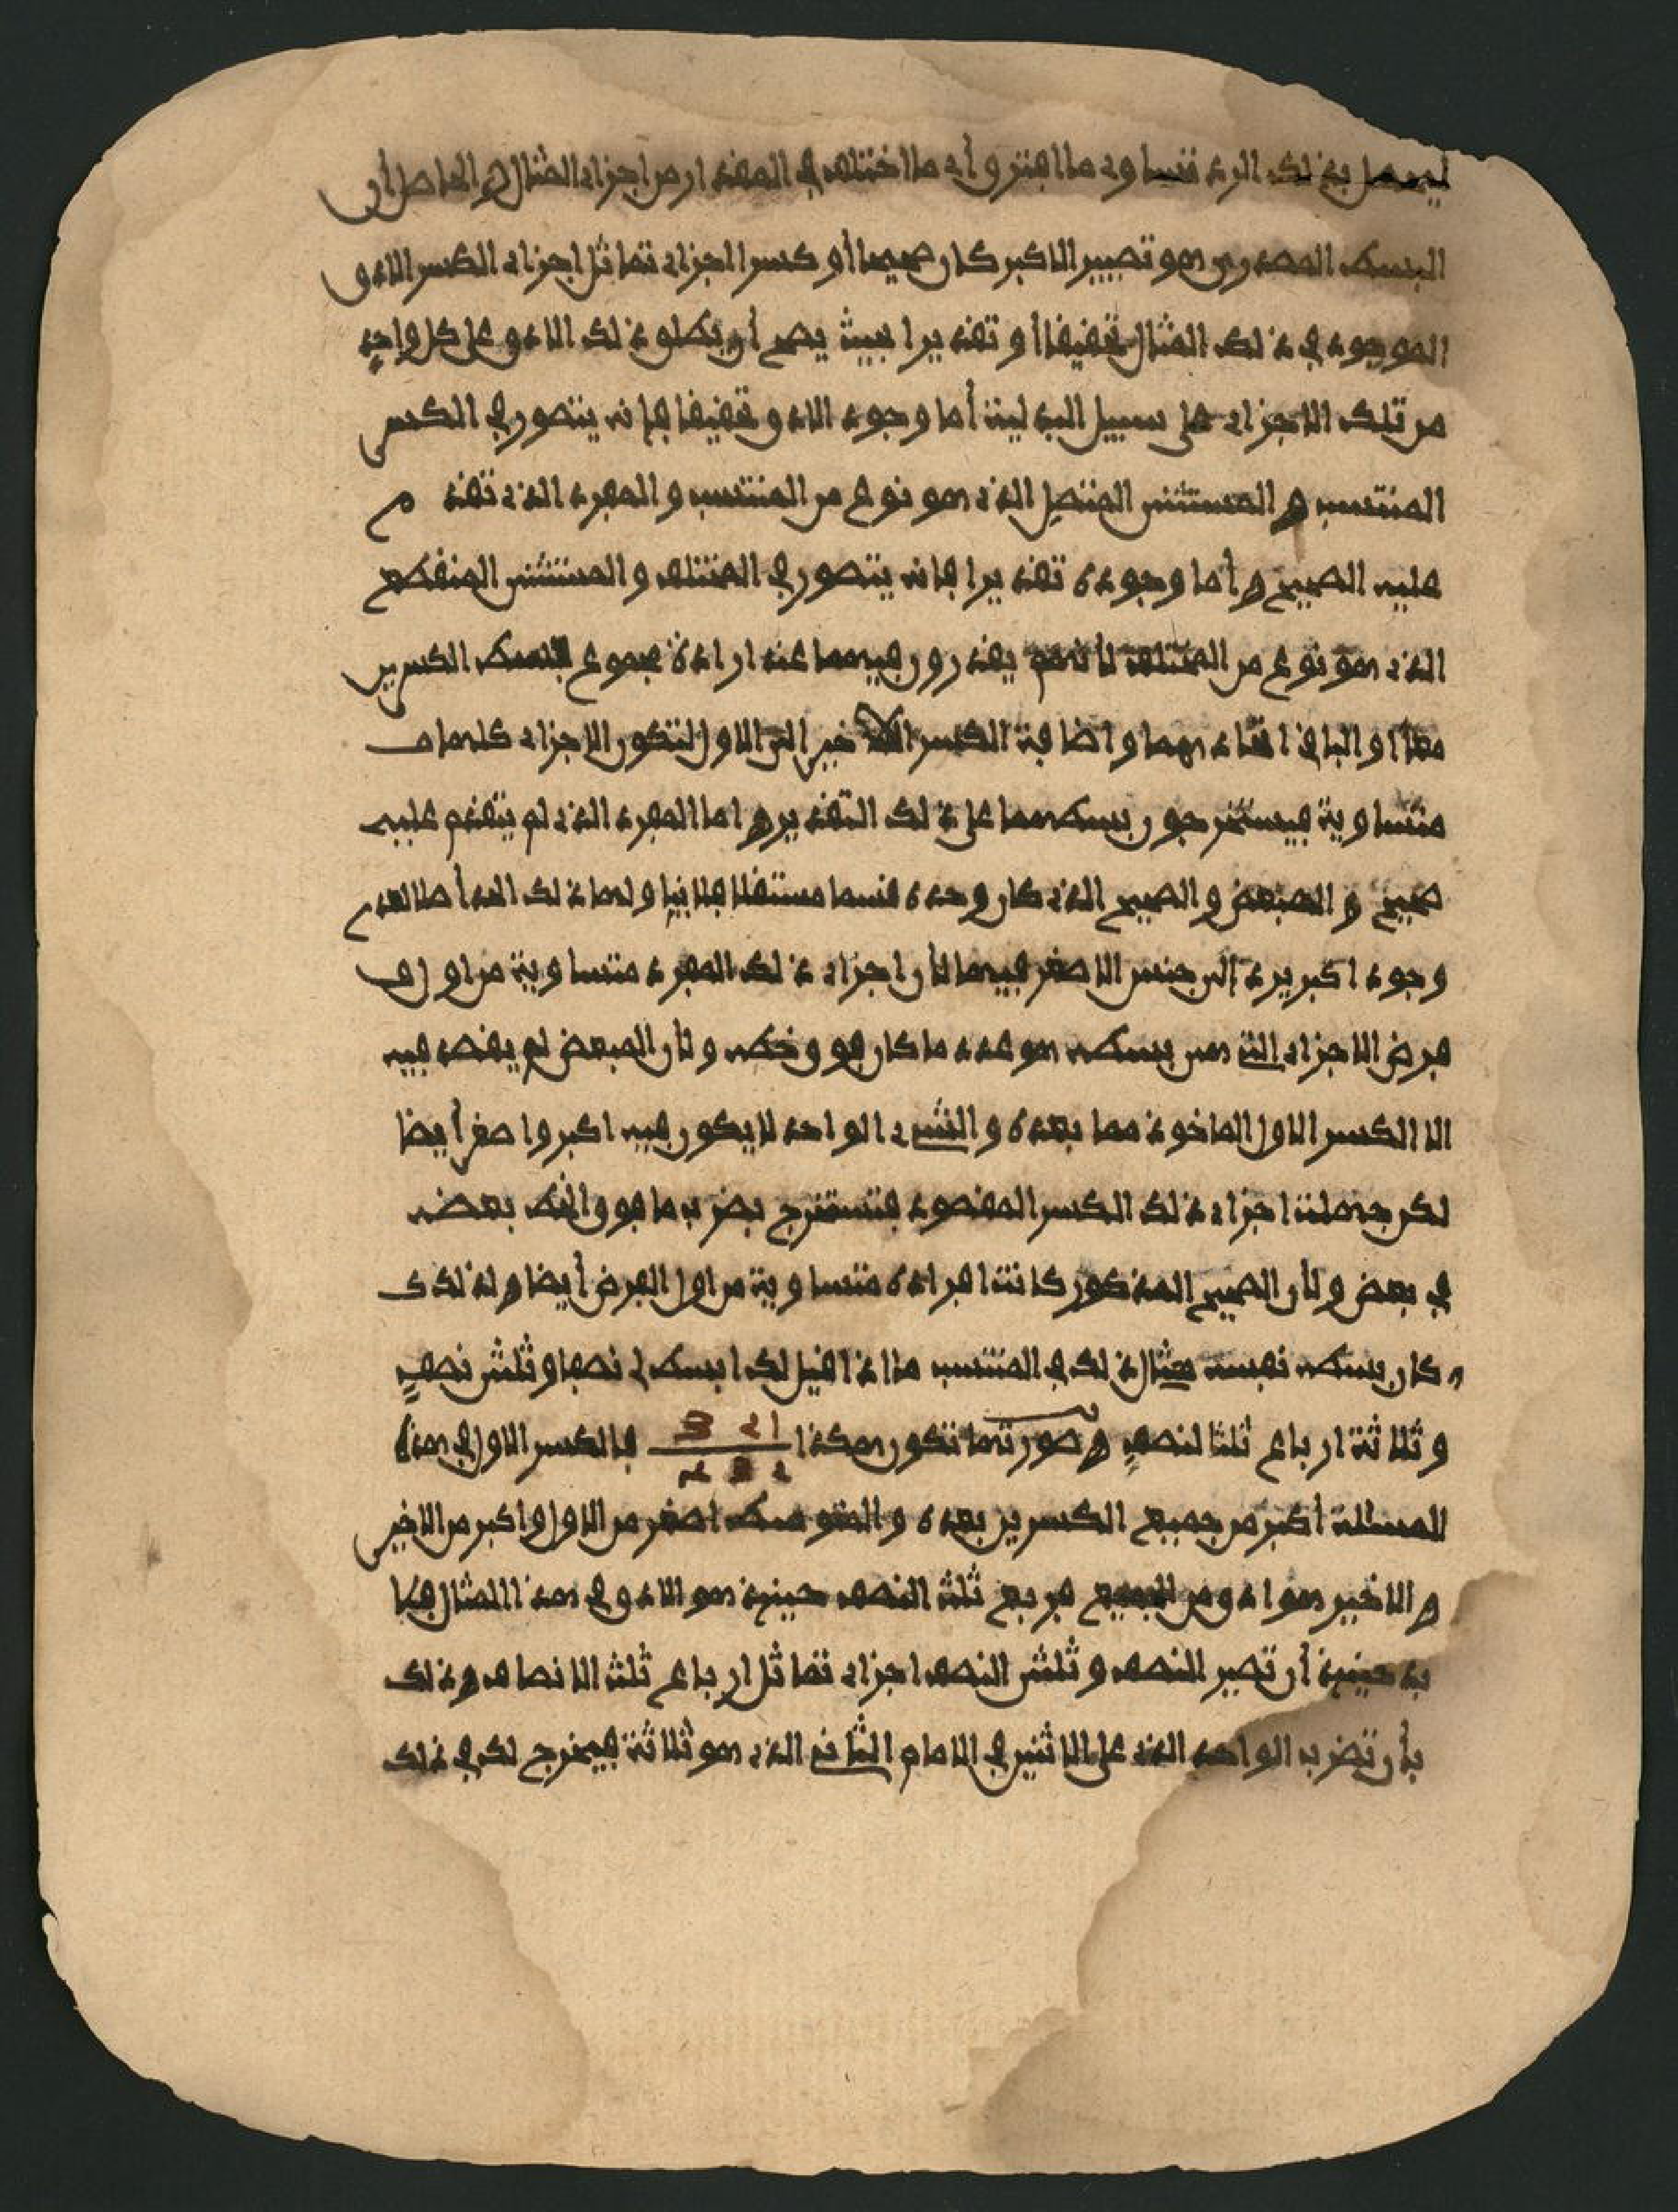 ليحصل بذلك الرد تساوى ما اهتز وأى ما اختلف في المقدار من اجزاء المثال والحاصل أن
البسط المصدري هو تصيير الاكبر كان صحيحا أو كسرا اجزاء تماثل اجزاء الكسر الادون
الموجود في ذلك المثال تحقيقا أو تقديرا بحيث يصح أن يطلق ذلك الادون على كل واحد
من تلك الاجزاء على سبيل البدلية أما وجود الادون تحقيقا فإنه يتصور في الكسر
المنتسب والمستثنى المتصل الذى هو نوع من المنتسب والمفرد الذى تقدم
عليه الصحيح وأما وجوده تقديرا فإنه يتصور في المختلف والمستثنى المنقطع
الذى هو نوع من المختلف لأنهم يقدرون فيهما عند ارادة مجموع بسط الكسرين
معا أو الباقي اتحادهما واضافة الكسر الاخير الى الاول لتكون الاجزاء كلها
متساوية فيستخرجون بسطهما على ذلك التقدير واما المفرد الذى لم يتقدم عليه
صحيح والمبعض والصحيح الذى كان وحده قسما مستقلا فلا يتأتى ولهما ذلك الحد أصلا لعدم
وجود اكبر يرد إلى جنس الاصغر فيهما لأن اجزاء ذلك المفرد متساوية من أول
فرض الاجزاء التي هي بسطه هو عدد ما كان فوق خطه ولأن المبعض لم يقصد فيه
الا الكسر الاول الماخوذ مما بعده والشىء الواحد لا يكون فيه اكبر واصغر أيضا
لكن جملة اجزاء ذلك الكسر المقصود فتستخرج بضرب ما فوق الخط بعضه
في بعض ولأن الصحيح المذكور كانت افراده متساوية من اول الفرض أيضا ولذلك
كان بسطه نفسه مثال ذلك في المنتسب ما اذا قيل لك ابسط لى نصفا وثلثى نصف
وثلاثة ارباع ثلث النصف وصورتها تكون هكذا 3 2 1 / 4 3 2 فالكسر الاول في هذه
المسئلة أكبر من جميع الكسرين بعده والمتوسط اصغر من الاول واكبر من الاخير
والاخير هو ادون من الجميع فربع ثلث النصف حينئذ هو الادون في هذا المثال فلا
بد حينئذ أن تصير النصف وثلثى النصف اجزاء تماثل ارباع ثلث الانصاف وذلك
بأن تضرب الواحد الذى على الاثنين في الامام الثانى الذى هو ثلاثة فيخرج لك في ذلك